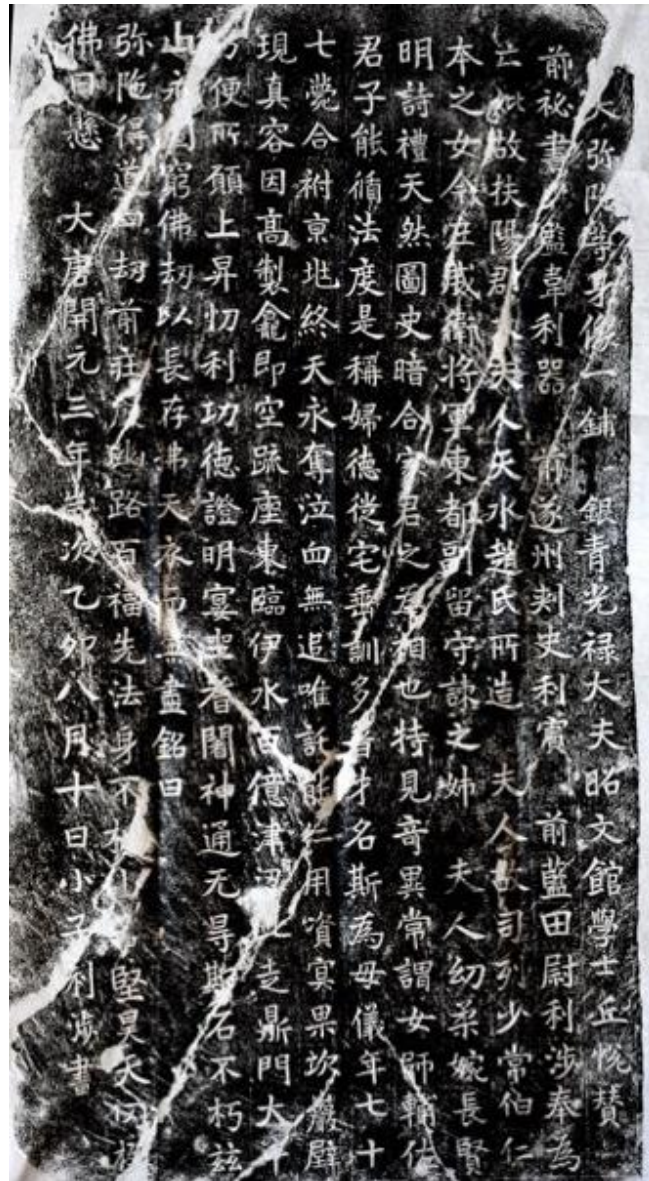 大弥陁等身像一鋪 銀青光禄大夫昭文館學士丘悅
前祕書監韋利器 前遂州刺史利賓 前藍田尉利涉奉為
亡妣故扶陽郡夫人天水趙氏所造 夫人故司列少常伯仁
本之女今左威衛將軍東都副留守諫之姉 夫人幼柔婉長賢
明詩禮天然圖史暗合家君之為相也特見竒異常謂女師輔佐
君子能循法度是稱婦德徙宅垂訓多才名斯為母儀年七十
七薨合祔京兆終天永奪泣血無追唯託能仁用資冥果坎巖壁
現真容因高製龕即空跡座東臨伊水百億津走鼎門大千
方便所願上昇忉利功德證明宴坐耆闍神通无㝵斯石不朽兹
山永固窮佛劫以長存拂天衣而無盡銘曰
弥陁得道劫前莊此路百福先法身不如山堅昊天罔極
佛日懸 大唐開元三年歲次乙卯八月十日小子利涉書